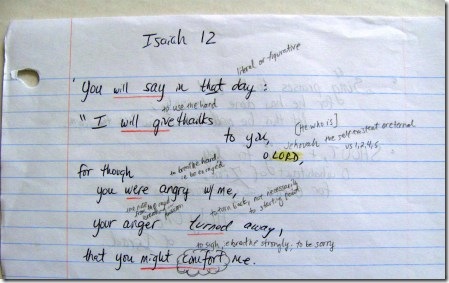 Isaiah 12
literal or figurative
"You will say in that day:
to use the hand
"I will give thanks
to you,
[He who is]
Jehovah the self existent or eternal
vs 1,2,4,5
O LORD,
for though
to breathe hard
to be enraged
you were angry w/me,
to turn back, not necessarily
to starting point
your anger turned away,
to sigh, breathe strongly, to be sorry
that you might comfort me.